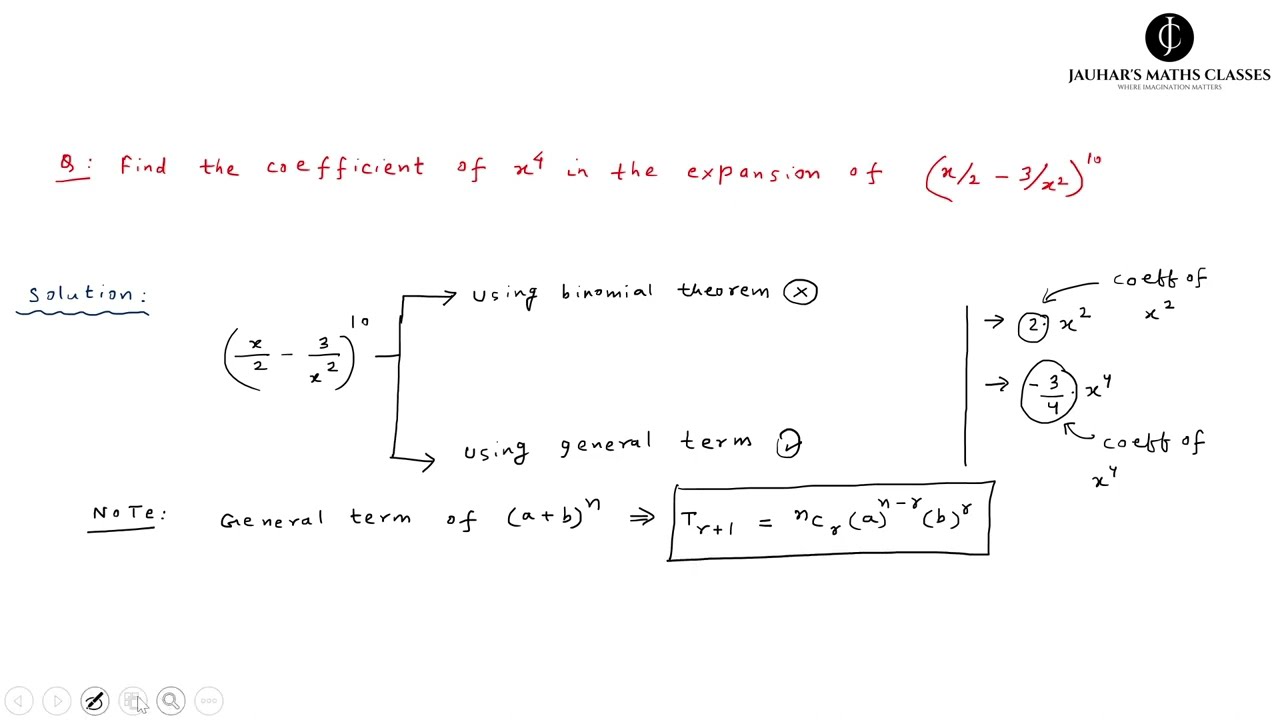 JC
JAUHAR'S MATHS CLASSES
WHERE IMAGINATION MATTERS
Q: Find the coefficient of x⁴ in the expansion of (x/2 - 3/x²)¹⁰
Solution:
(x/2 - 3/x²)¹⁰
→ using binomial theorem ⊗
→ using general term ✓
→ 2· x²
coeff of
x²
→ -3/4 · x⁴
coeff of
x⁴
NOTE: General term of (a+b)ⁿ ⇒ Tᵣ₊₁ = ⁿCᵣ (a)ⁿ⁻ʳ (b)ʳ